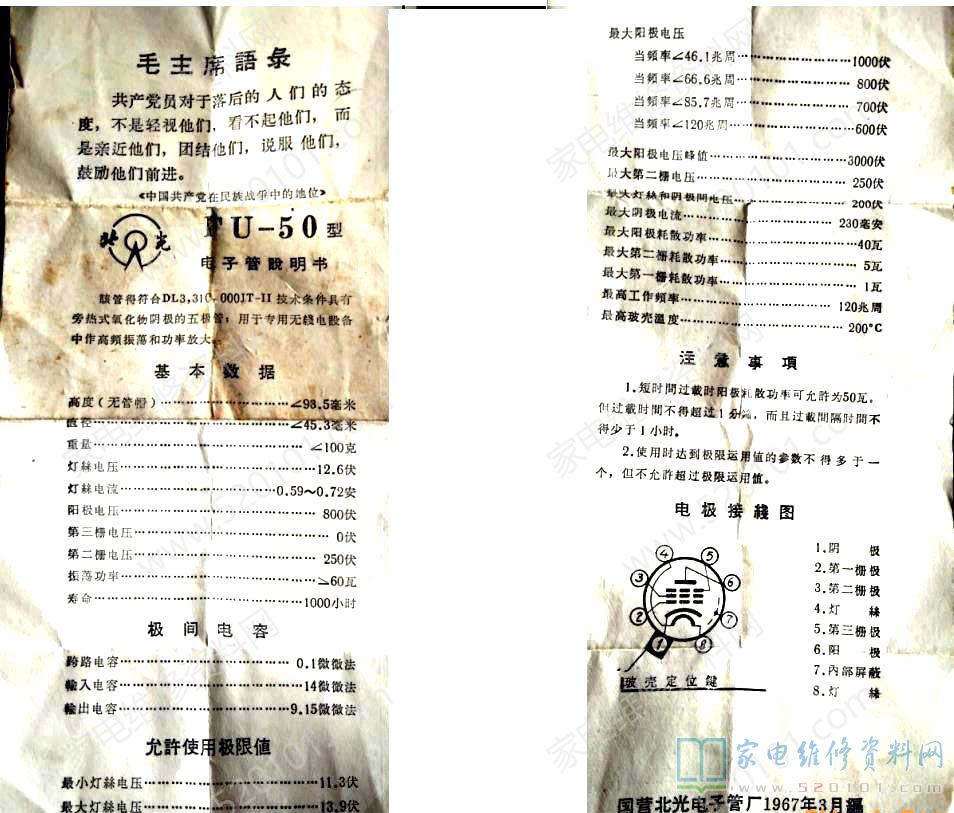 毛主席語录
共产党员对于落后的人们的态
度，不是轻视他们，看不起他们，而
是亲近他们，团结他们，说服他们，
鼓励他们前进。
《中国共产党在民族战争中的地位》
北光
FU-50型
电子管說明书
該管得符合DL3,310,000JT-II技术条件具有
旁热式氧化物阴极的五极管；用于专用无线电設备
中作高頻振荡和功率放大。
基本数据
高度（无管帽）∠93.5毫米
直径∠45.3毫米
重量∠100克
灯絲电压12.6伏
灯絲电流0.59～0.72安
阳极电压800伏
第三栅电压0伏
第二栅电压250伏
振荡功率≥60瓦
寿命1000小时
极间电容
跨路电容0.1微微法
輸入电容14微微法
輸出电容9.15微微法
允許使用极限値
最小灯絲电压11.3伏
最大灯絲电压13.9伏
最大阳极电压
当頻率∠46.1兆周1000伏
当頻率∠66.6兆周800伏
当頻率∠85.7兆周700伏
当頻率∠120兆周600伏
最大阳极电压峰値3000伏
最大第二栅电压250伏
最大灯絲和阴极間电压200伏
最大阴极电流230毫安
最大阳极耗散功率40瓦
最大第二栅耗散功率5瓦
最大第一栅耗散功率1瓦
最高工作頻率120兆周
最高玻壳温度200°C
注意事項
1.短时間过載时阳极耗散功率可允許为50瓦。
但过載时間不得超过1分鈡，而且过載間隔时間不
得少于1小时。
2.使用时达到极限运用値的参数不得多于一
个，但不允許超过极限运用値。
电极接綫图
4
5
3
6
2
7
1
8
玻壳定位键
1.阴极
2.第一栅极
3.第二栅极
4.灯絲
5.第三栅极
6.阳极
7.內部屏蔽
8.灯絲
国营北光电子管厂1967年3月編
家电维修资料网
www.520101.com